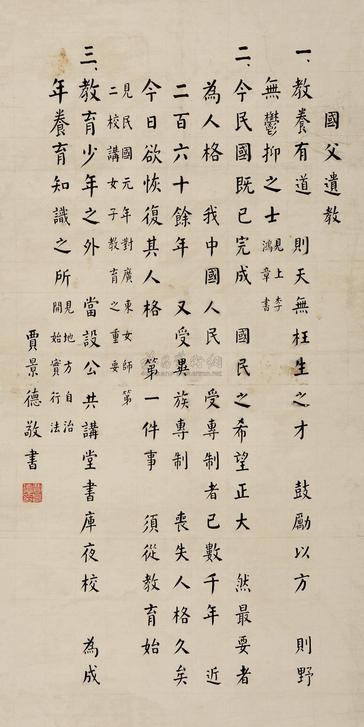 國父遺教
一、教養有道 則天無枉生之才 鼓勵以方 則野
無鬱抑之士 見上李
鴻章書
二、今民國既已完成 國民之希望正大 然最要者
為人格 我中國人民 受專制者已數千年 近
二百六十餘年 又受異族專制 喪失人格久矣
今日欲恢復其人格 第一件事 須從教育始
見民國元年對廣東女師第
二校講女子教育之重要
三、教育少年之外 當設公共講堂書庫夜校 為成
年養育知識之所 見地方自治
開始實行法
賈景德敬書